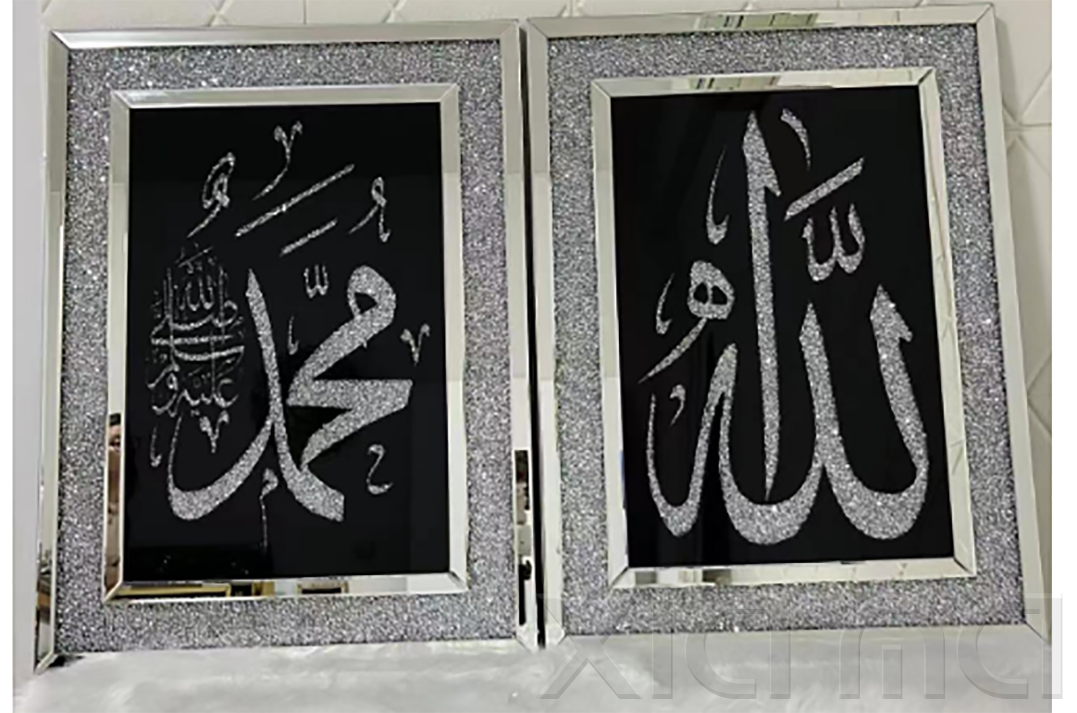 الله
محمد
صلى الله عليه وسلم